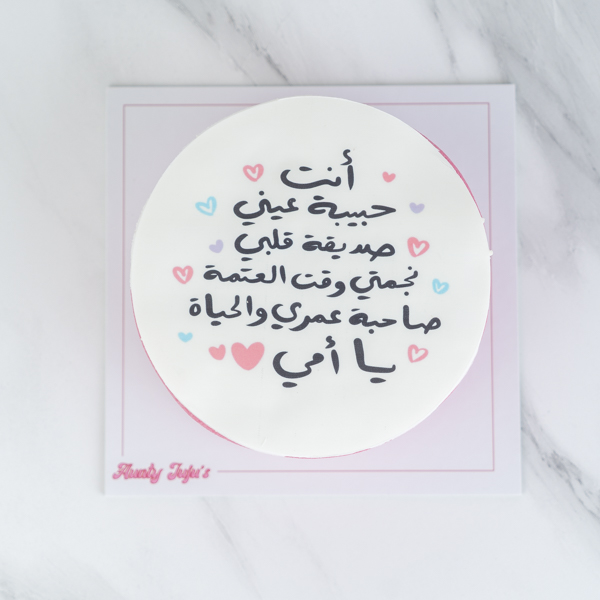 أنت
حبيبة عيني
صديقة قلبي
نجمتي وقت العتمة
صاحبة عمري والحياة
يا أمي
Aunty Juju's